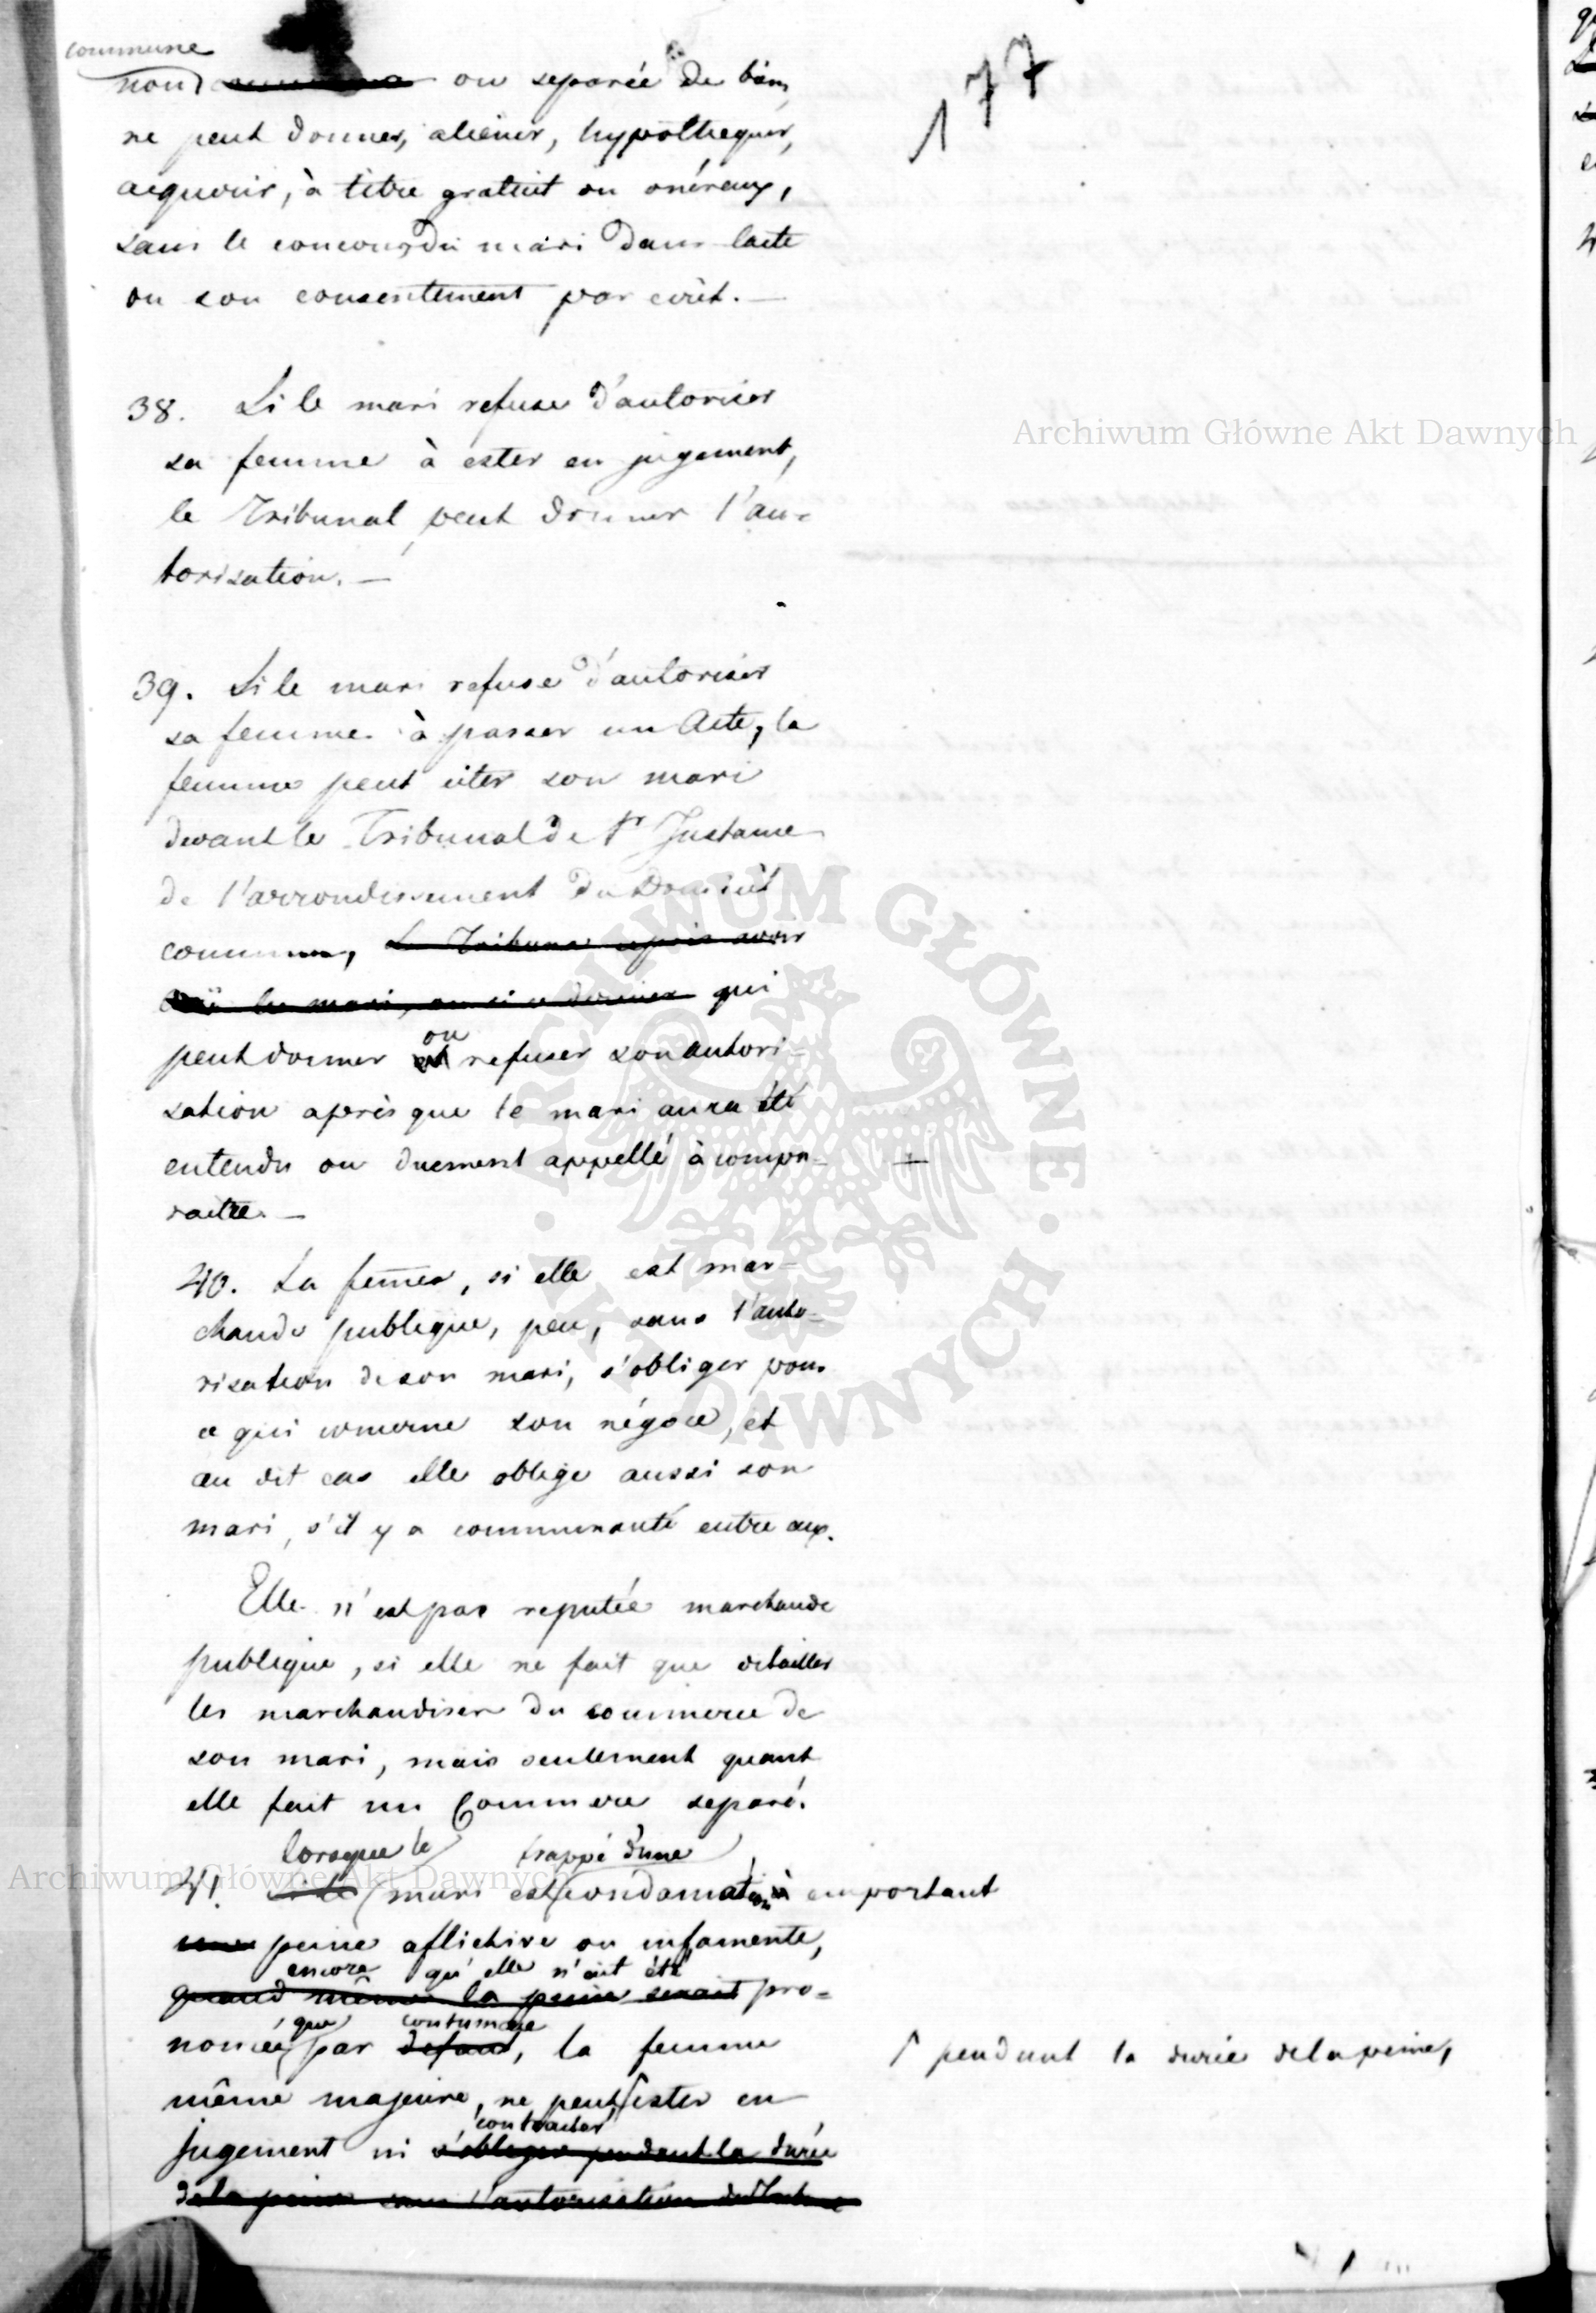 177
commune
non ou separée de biens
ne peut donner, aliener, hypothequer,
acquerir, à titre gratuit ou onéreux,
sans le concours du mari dans l'acte
ou son consentement par ecrit. —
38. Si le mari refuse d'autoriser
sa femme à ester en jugement,
le Tribunal peut donner l'au-
torisation. —
39. Si le mari refuse d'autoriser
sa femme à passer un Acte, la
femme peut citer son mari
devant le Tribunal de 1r Instance
de l'arrondissement du Domicil
commun, Le Tribunal après avoir
ouï le mari, ou si ce dernier qui
ou
peut donner et refuser son autori-
sation après que le mari aura été
entendu ou duement appellé à compa-
raitre. —
40. La femme, si elle est mar-
chande publique, peu, sans l'auto-
risation de son mari, s'obliger pour
ce qui concerne son négoce, et
au dit cas elle oblige aussi son
mari, s'il y a communauté entre eux.
Elle n'est pas reputée marchande
publique, si elle ne fait que detailler
les marchandises du commerce de
son mari, mais seulement quant
elle fait un Commerce separé.
lorsque le frappé d'une
41. si le mari est condamnation à emportant
une peine aflictive ou infamente,
encore qu'elle n'ait été
quand même la peine serait pro-
que contumace
noncée par defaut, la femme
même majeure, ne peut ester en
↑ pendant la durée de la peine,
contracter
jugement ni s'obliger pendant la durée
de la peine sans l'autorisation du
Archiwum Główne Akt Dawnych
Archiwum Główne Akt Dawnych
ARCHIWUM GŁÓWNE · AKT DAWNYCH ·